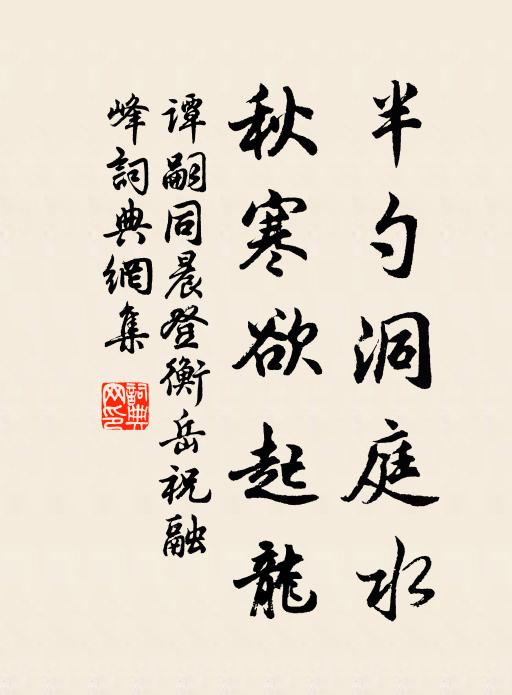 半勺洞庭水
秋寒欲起龍
谭嗣同晨登衡岳祝融
峰詞典網集
詞典
网印